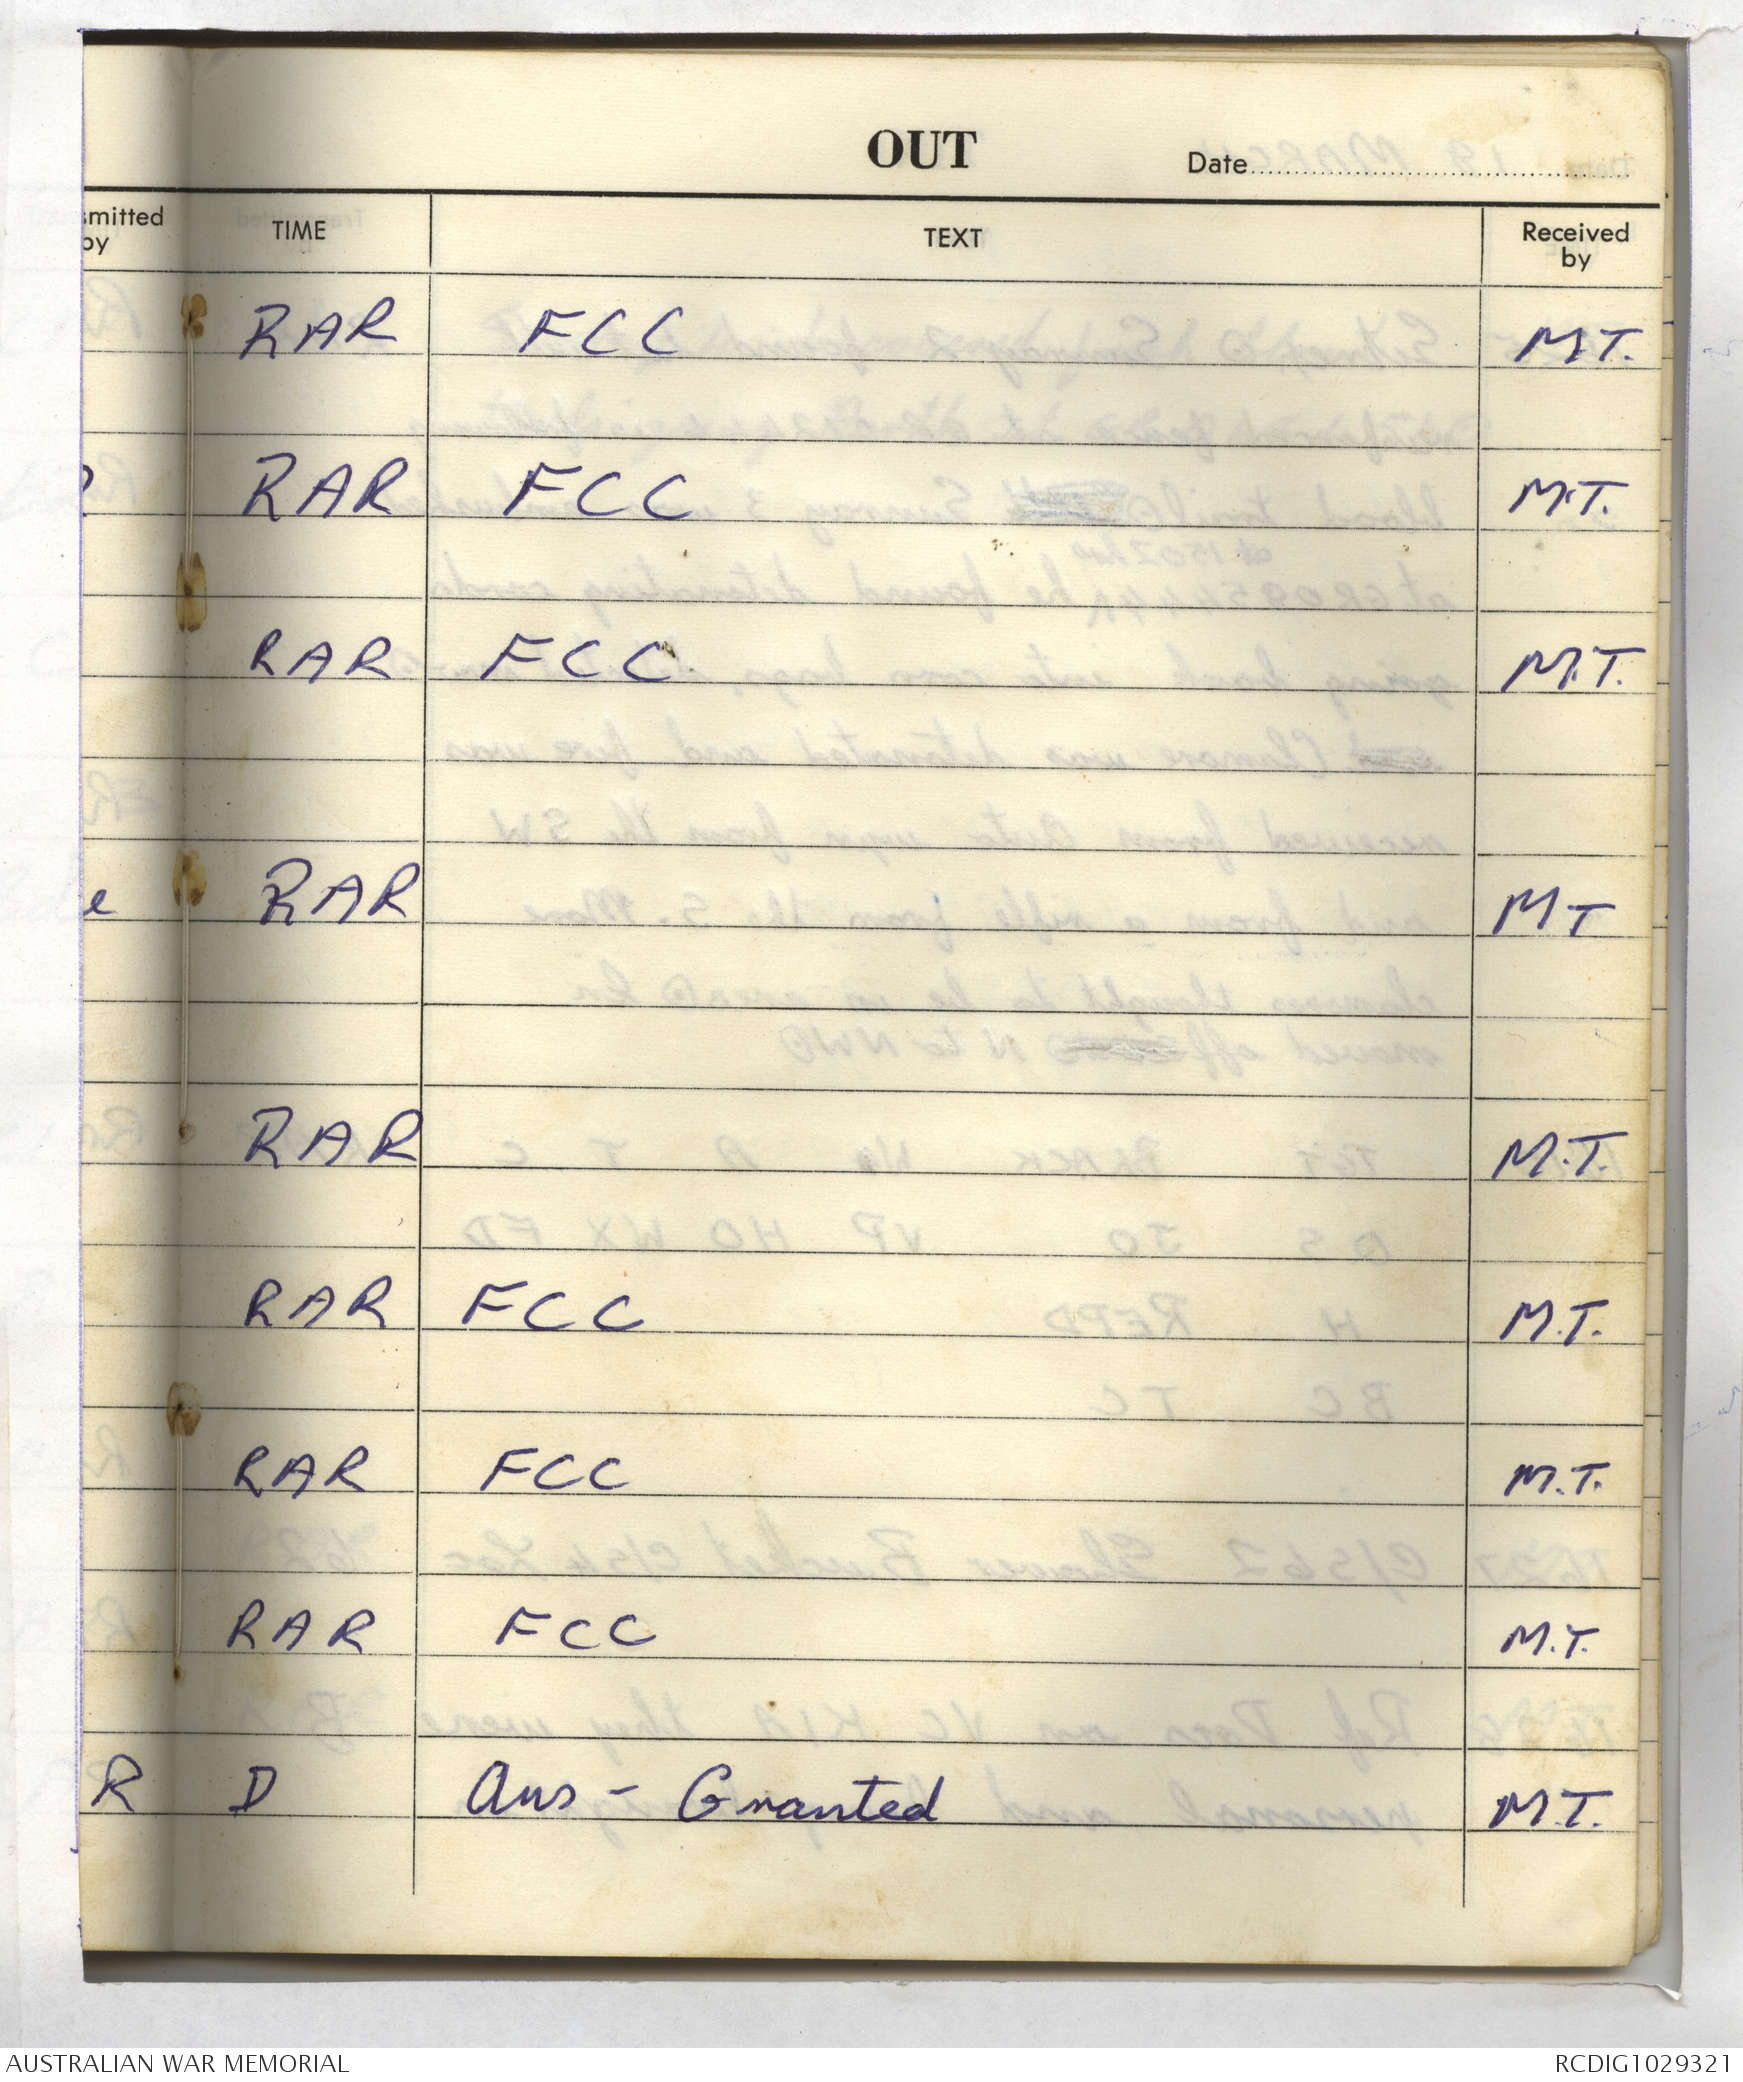 OUT
Date
smitted by TIME TEXT Received by
RAR FCC M.T.
RAR FCC M.T.
RAR FCC M.T.
e RAR MT
RAR M.T.
RAR FCC M.T.
RAR FCC M.T.
RAR FCC M.T.
R D Ans - Granted M.T.
AUSTRALIAN WAR MEMORIAL RCDIG1029321